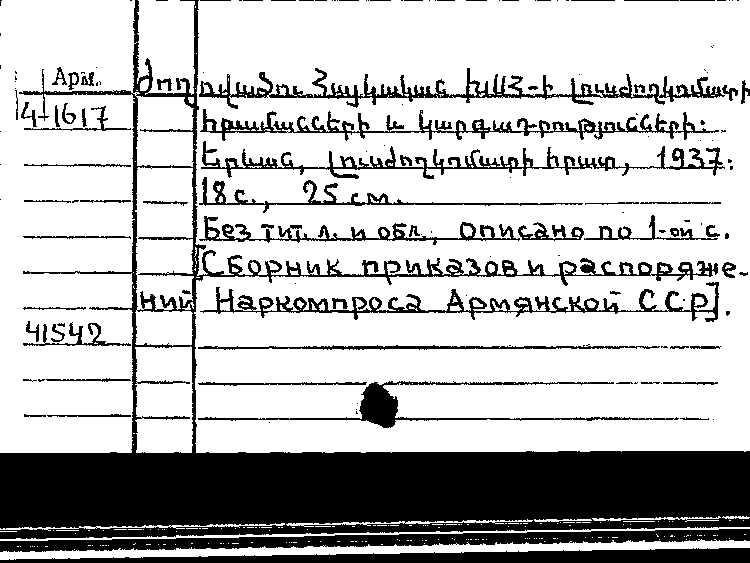 Арм.
4-1617
Ժողովածու Հայկական ԽՍՀ-ի Լուսժողկոմատի
հրամանների և կարգադրությունների:
Երևան, Լուսժողկոմատի հրատ, 1937:
18 с., 25 см.
Без тит. л. и обл., описано по 1-ой с.
[Сборник приказов и распоряже-
ний Наркомпроса Армянской ССР].
41542